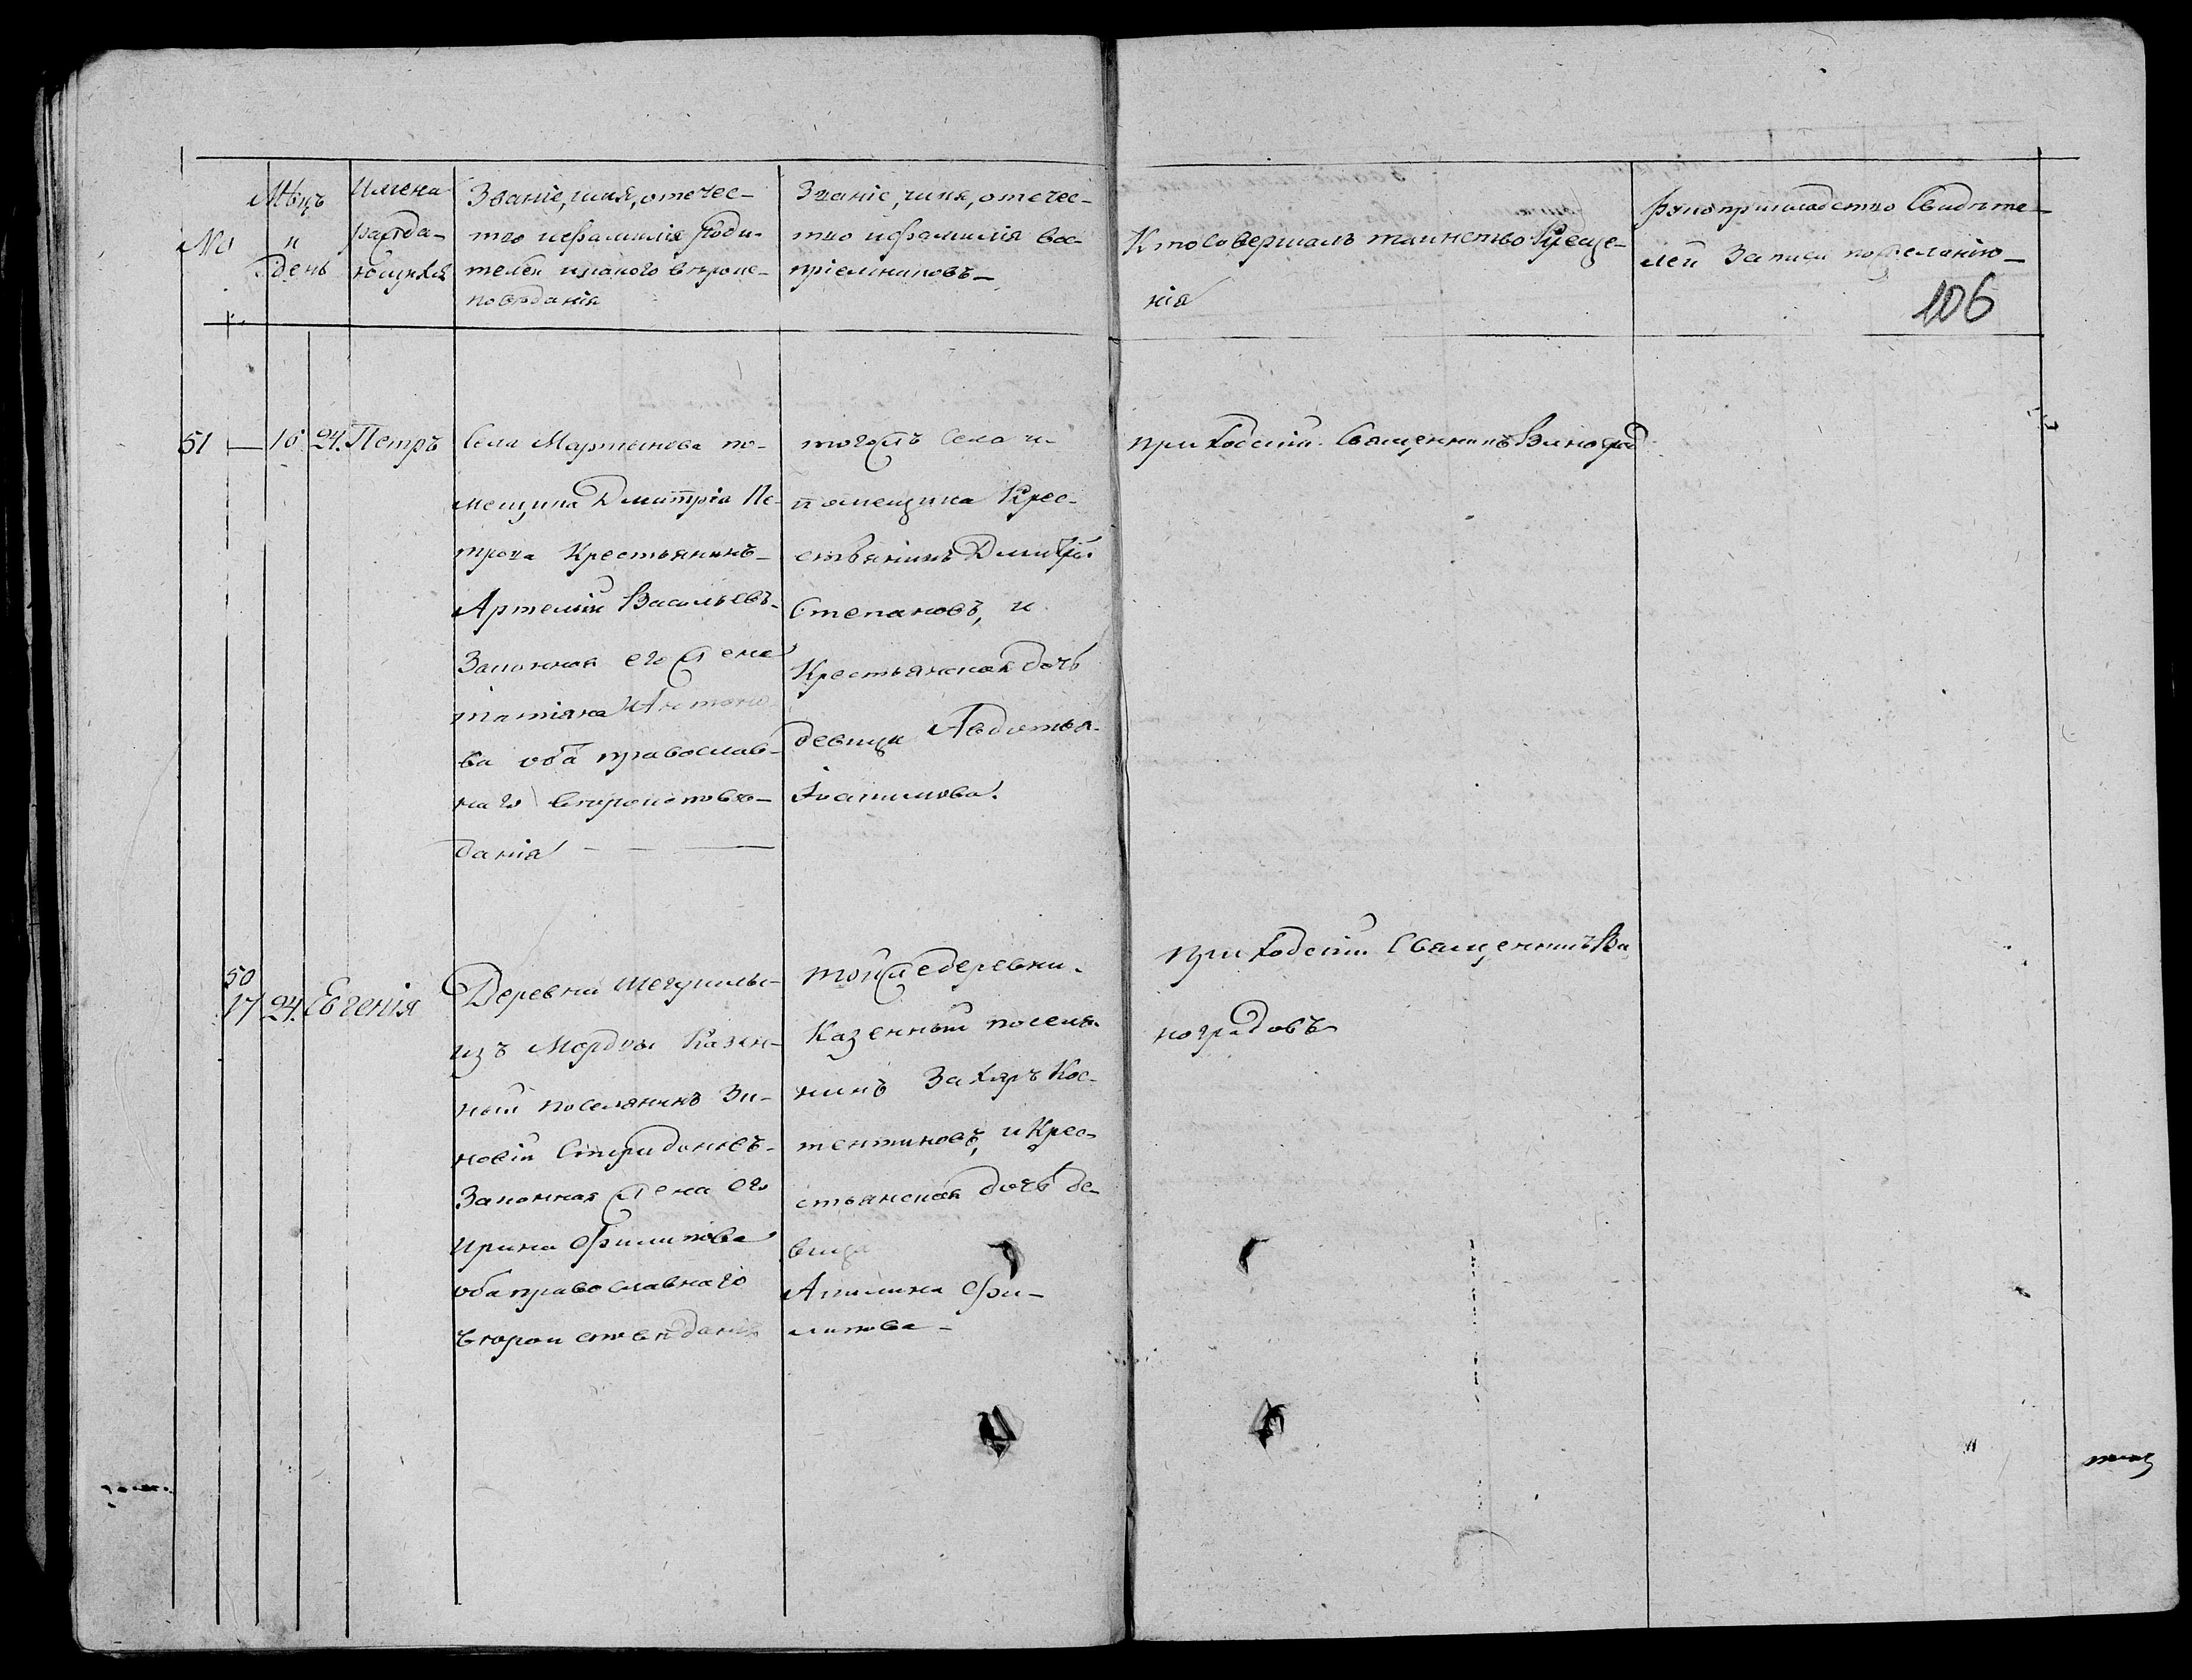 №
Мѣцъ
и
день
Имена
рожда-
ющихся
Званіе, имя, отечес-
тво и фамилія роди-
телей и какого вѣроис-
повѣданія
Званіе, имя, отечес-
тво и фамилія вос-
пріемниковъ
Кто совершалъ таинство Креще-
нія
рукоприкладство Свидѣте-
лей Записи по желанію
106
51 — 10 24. Петръ
Села Мартынова по-
мещика Дмитрія Пе-
трова Крестьянинъ
Артемій Васильевъ
Законная его жена
татіяна Антоно
ва оба православ-
наго вѣроисповѣ-
данія
тогожъ Села и
помещика Крес-
стьянинъ Дмитрій
Степановъ, и
Крестьянская дочь
девица Авдотья
Іоакимова.
приходскій Священникъ Виноград
50
17 24. Евгенія
Деревни
изъ Мордвы Казен-
ный поселянинъ Зи-
новій Спиридоновъ
Законная жена его
Ирина Филипова
оба православнаго
вѣроисповѣданія
тойже деревни
Казенный поселя-
нинъ Захаръ Кос-
тентиновъ, и Крес-
стьянская дочь де-
вица
Акилина Фи-
липова
приходскій Священникъ Ви
ноградовъ